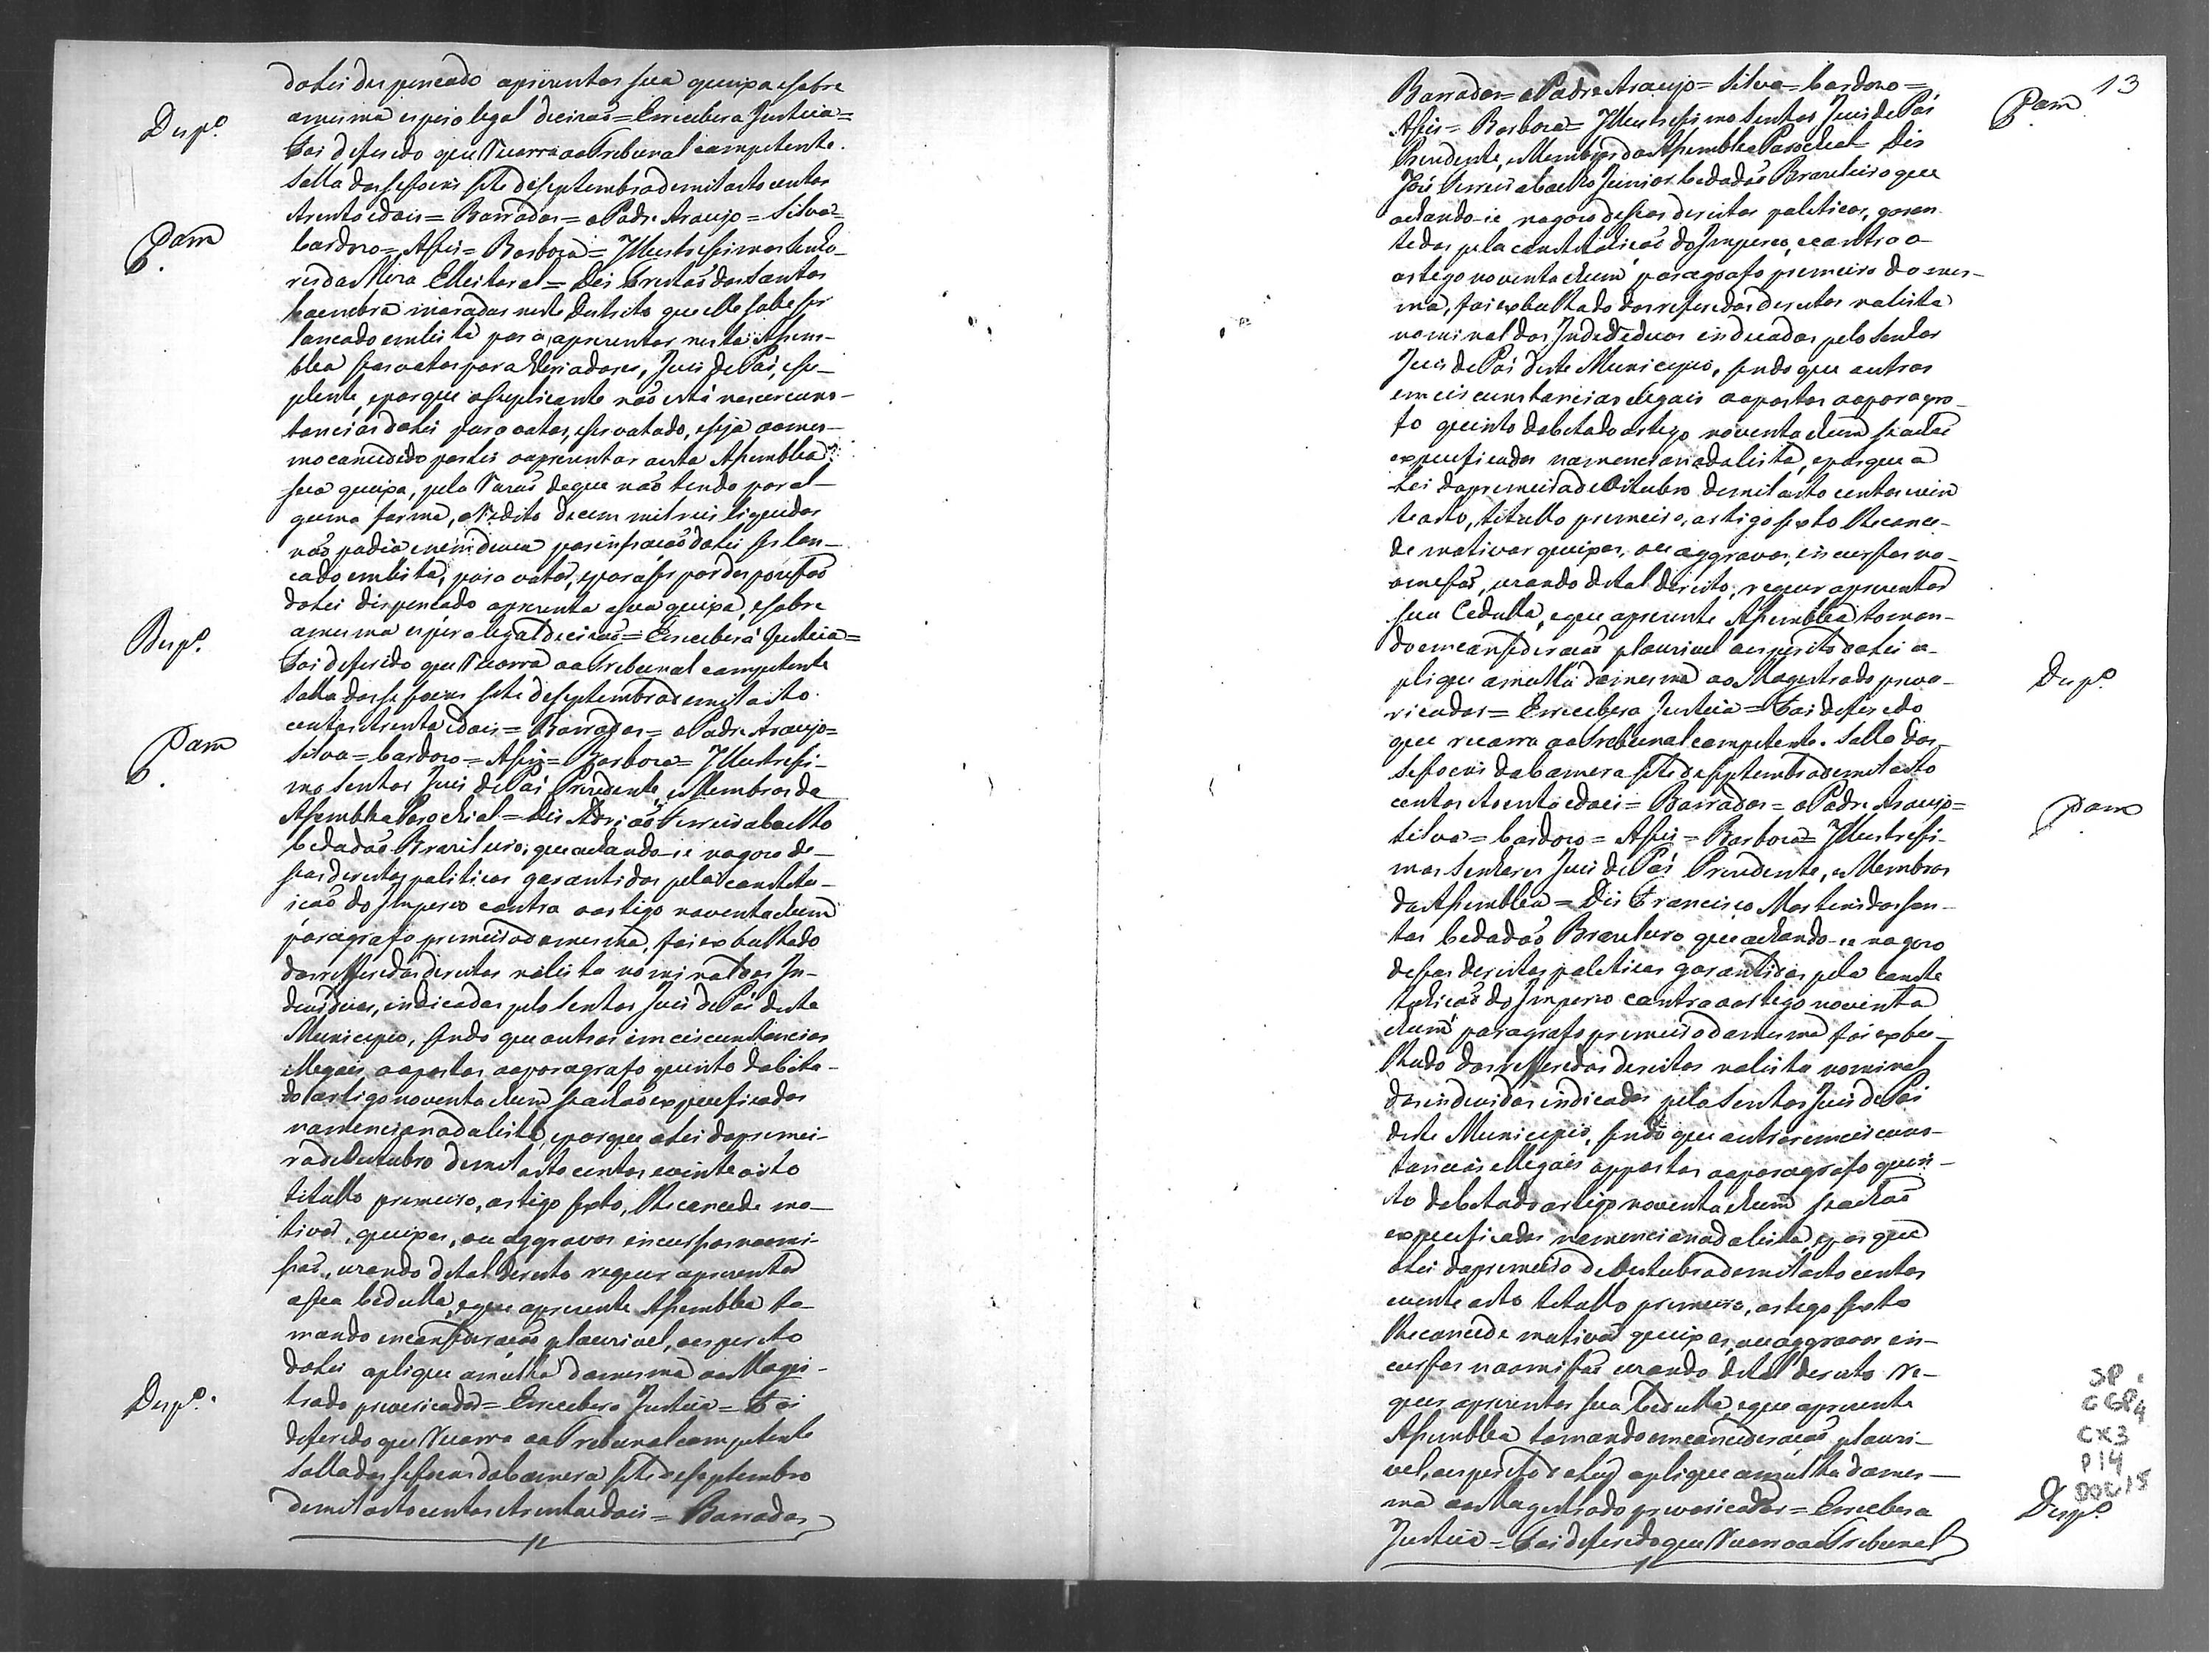 da Lei despensado aprezentar sua queixa e sobre
Desp.o
a mesma espera legal decizaõ = E recebera Justicia =
Foi deferido que recorra ao Tribunal competente.
Salla das seſsoens sete de septembro de mil oito centos
e trenta e dois = Barradas = o Padre Araujo = Silva =
Pam
Cardozo = Aſsis = Barboza = Illustriſsimos Senho-
res da Meza Elleitoral = Dis Cristaõ dos Santos
Coembra morador neste Distrito que elle sabe ser
lancado em lista para aprezentar nesta Aſsem-
blea seos votos para Veriadores, Juis de Pás, e su-
plente, e porque o suplicante naõ está nas cercuns-
tancias da Lei para votar, e ser votado, e seja ao mes-
mo concedido por Lei o aprezentar a esta Aſsemblea
sua queixa, pela Razaõ de que naõ tendo por al-
guma forma, o Redito de cem mil reis liquidos
naõ podia nem devia por infraçaõ da Lei ser lan-
cado em lista, para votar, e para ser por despoziſsaõ
da Lei dispensado aprezenta a sua queixa, e sobre
a mesma espera legal decizaõ = E recebera Justicia =
Desp.o
Foi deferido que recorra ao Tribunal competente
Salla das seſsoens sete de septembro de mil oito
centos e trenta e dois = Barradas = o Padre Araujo =
Pam
Silva = Cardozo = Aſsis = Barboza = Illustriſsi-
mo Senhor Juis de Pás Prezidente, e Membros da
Aſsemblea Parochial = Dis Adriaõ Ferreira Coelho
Cidadaõ Brazileiro, que achando-se no gozo de
seos direitos politicos garantidos pela constitu-
içaõ do Imperio contra o artigo noventa e hum
paragrafo primeiro da mesma, foi exbulhado
dos refferidos direitos na lista nominal dos In-
deviduos, indicados pelo Senhor Juis de Pás deste
Municipio, sendo que outros em circunstancias
illegais a opostas ao paragrafo quinto do Cita-
do artigo noventa e hum se achaõ expecificados
na mencionada lista, e porque a Lei da primei-
ra de Outubro de mil oito centos e vinte oito
titullo primeiro, artigo sexto, lhe concede mo-
tivos, queixas, ou aggravos incursos na omi-
ſsaõ, uzando de tal direito requer aprezentar
a sua Cedulla, e que a prezente Aſsemblea to-
mando em consideraçaõ plauzivel, o esperito
da Lei aplique a multa da mesma ao Magis-
trado prevaricador = E recebera Justicia = Foi
Desp.o
deferido que recorra ao Tribunal competente
Salla das seſsoens da Camera sete de septembro
de mil oito centos e trenta e dois = Barradas
13
Barradas = o Padre Araujo = Silva = Cardozo =
Pam
Aſsis = Barboza = Illustriſsimo Senhor Juis de Pás
Prezidente, e Membros da Aſsemblea Parochial = Dis
José Ferreira Coelho Junior Cidadaõ Brazileiro que
achando-se no gozo de seos direitos politicos, garan-
tidos pela constituiçaõ do Imperio, e contra o
artigo noventa e hum paragrafo primeiro da mes-
ma, foi exbulhado dos referidos direitos na lista
nominal dos Indeviduos indicados pelo Senhor
Juis de Pás deste Municipio, sendo que outros
em circunstancias elegais a opostas ao paragra-
fo quinto do Citado artigo noventa e hum se achaõ
expecificados na mencionada lista, e porque a
Lei da primeira de Oitubro de mil oito centos e vin
te oito, titullo primeiro, artigo sexto lhe conce-
de motivos queixas, ou aggravos, incursos na
omeſsaõ, uzando de tal direito, requer aprezentar
sua Cedulla, e que a prezente Aſsemblea toman-
do em consideraçaõ plauzivel o esperito da Lei a-
plique a multa da mesma ao Magistrado preva-
Desp.o
ricador = E recebera Justicia = Foi deferido
que recorra ao Tribunal competente. Salla das
seſsoens da Camera sete de septembro de mil oito
centos e trenta e dois = Barradas = o Padre Araujo =
Pam
Silva = Cardozo = Aſsis = Barboza = Illustriſsi-
mos Senhores Juis de Pás Prezidente, e Membros
da Aſsemblea = Dis Francisco Martins dos San-
tos Cidadaõ Brazileiro que achando-se no gozo
de seos direitos politicos garantidos pela Conste
tuiçaõ do Imperio contra o artigo noventa
e hum paragrafo primeiro da mesma foi exbu-
lhado dos refferidos direitos na lista nominal
dos individos indicados pelo Senhor Juis de Pás
deste Municipio, sendo que outros em circuns-
tancias illegais oppostas ao paragrafo quin-
to do Citado artigo noventa e hum se achaõ
expecificados na mencionada lista, e porque
a Lei da primeira de Outubro de mil oito centos
e vente oito titullo primeiro, artigo sexto
lhe concede motivos queixas, ou aggravos in-
cursos na omiſsaõ uzando de tal direito re-
quer aprezentar sua Cedulla, e que a prezente
Aſsemblea tomando em consideraçaõ plauzi-
vel, o esperito da Lei, aplique a multa da mes-
ma ao Magistrado prevaricador = E recebera
Desp.o
Justicia = Foi deferido que recorra ao Tribunal
SP.
CGP4
CX3
P14
DOC15